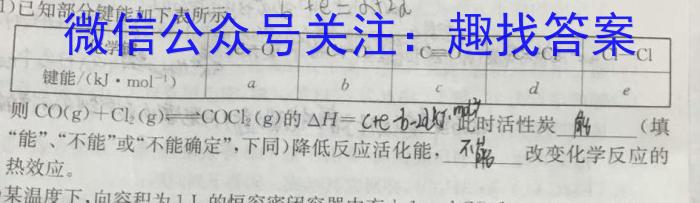 1)已知部分键能如下表所示
微信公众号关注：趣找答案
键能/(kJ·mol⁻¹) a b c d e
则 CO(g)+Cl₂(g)⇌COCl₂(g)的 ΔH= c+e-b-2d kJ·mol⁻¹ 此时活性炭 能 (填
“能”、“不能”或“不能确定”,下同)降低反应活化能, 不能 改变化学反应的
热效应。
某温度下,向容积为1 L的恒容密闭容器中